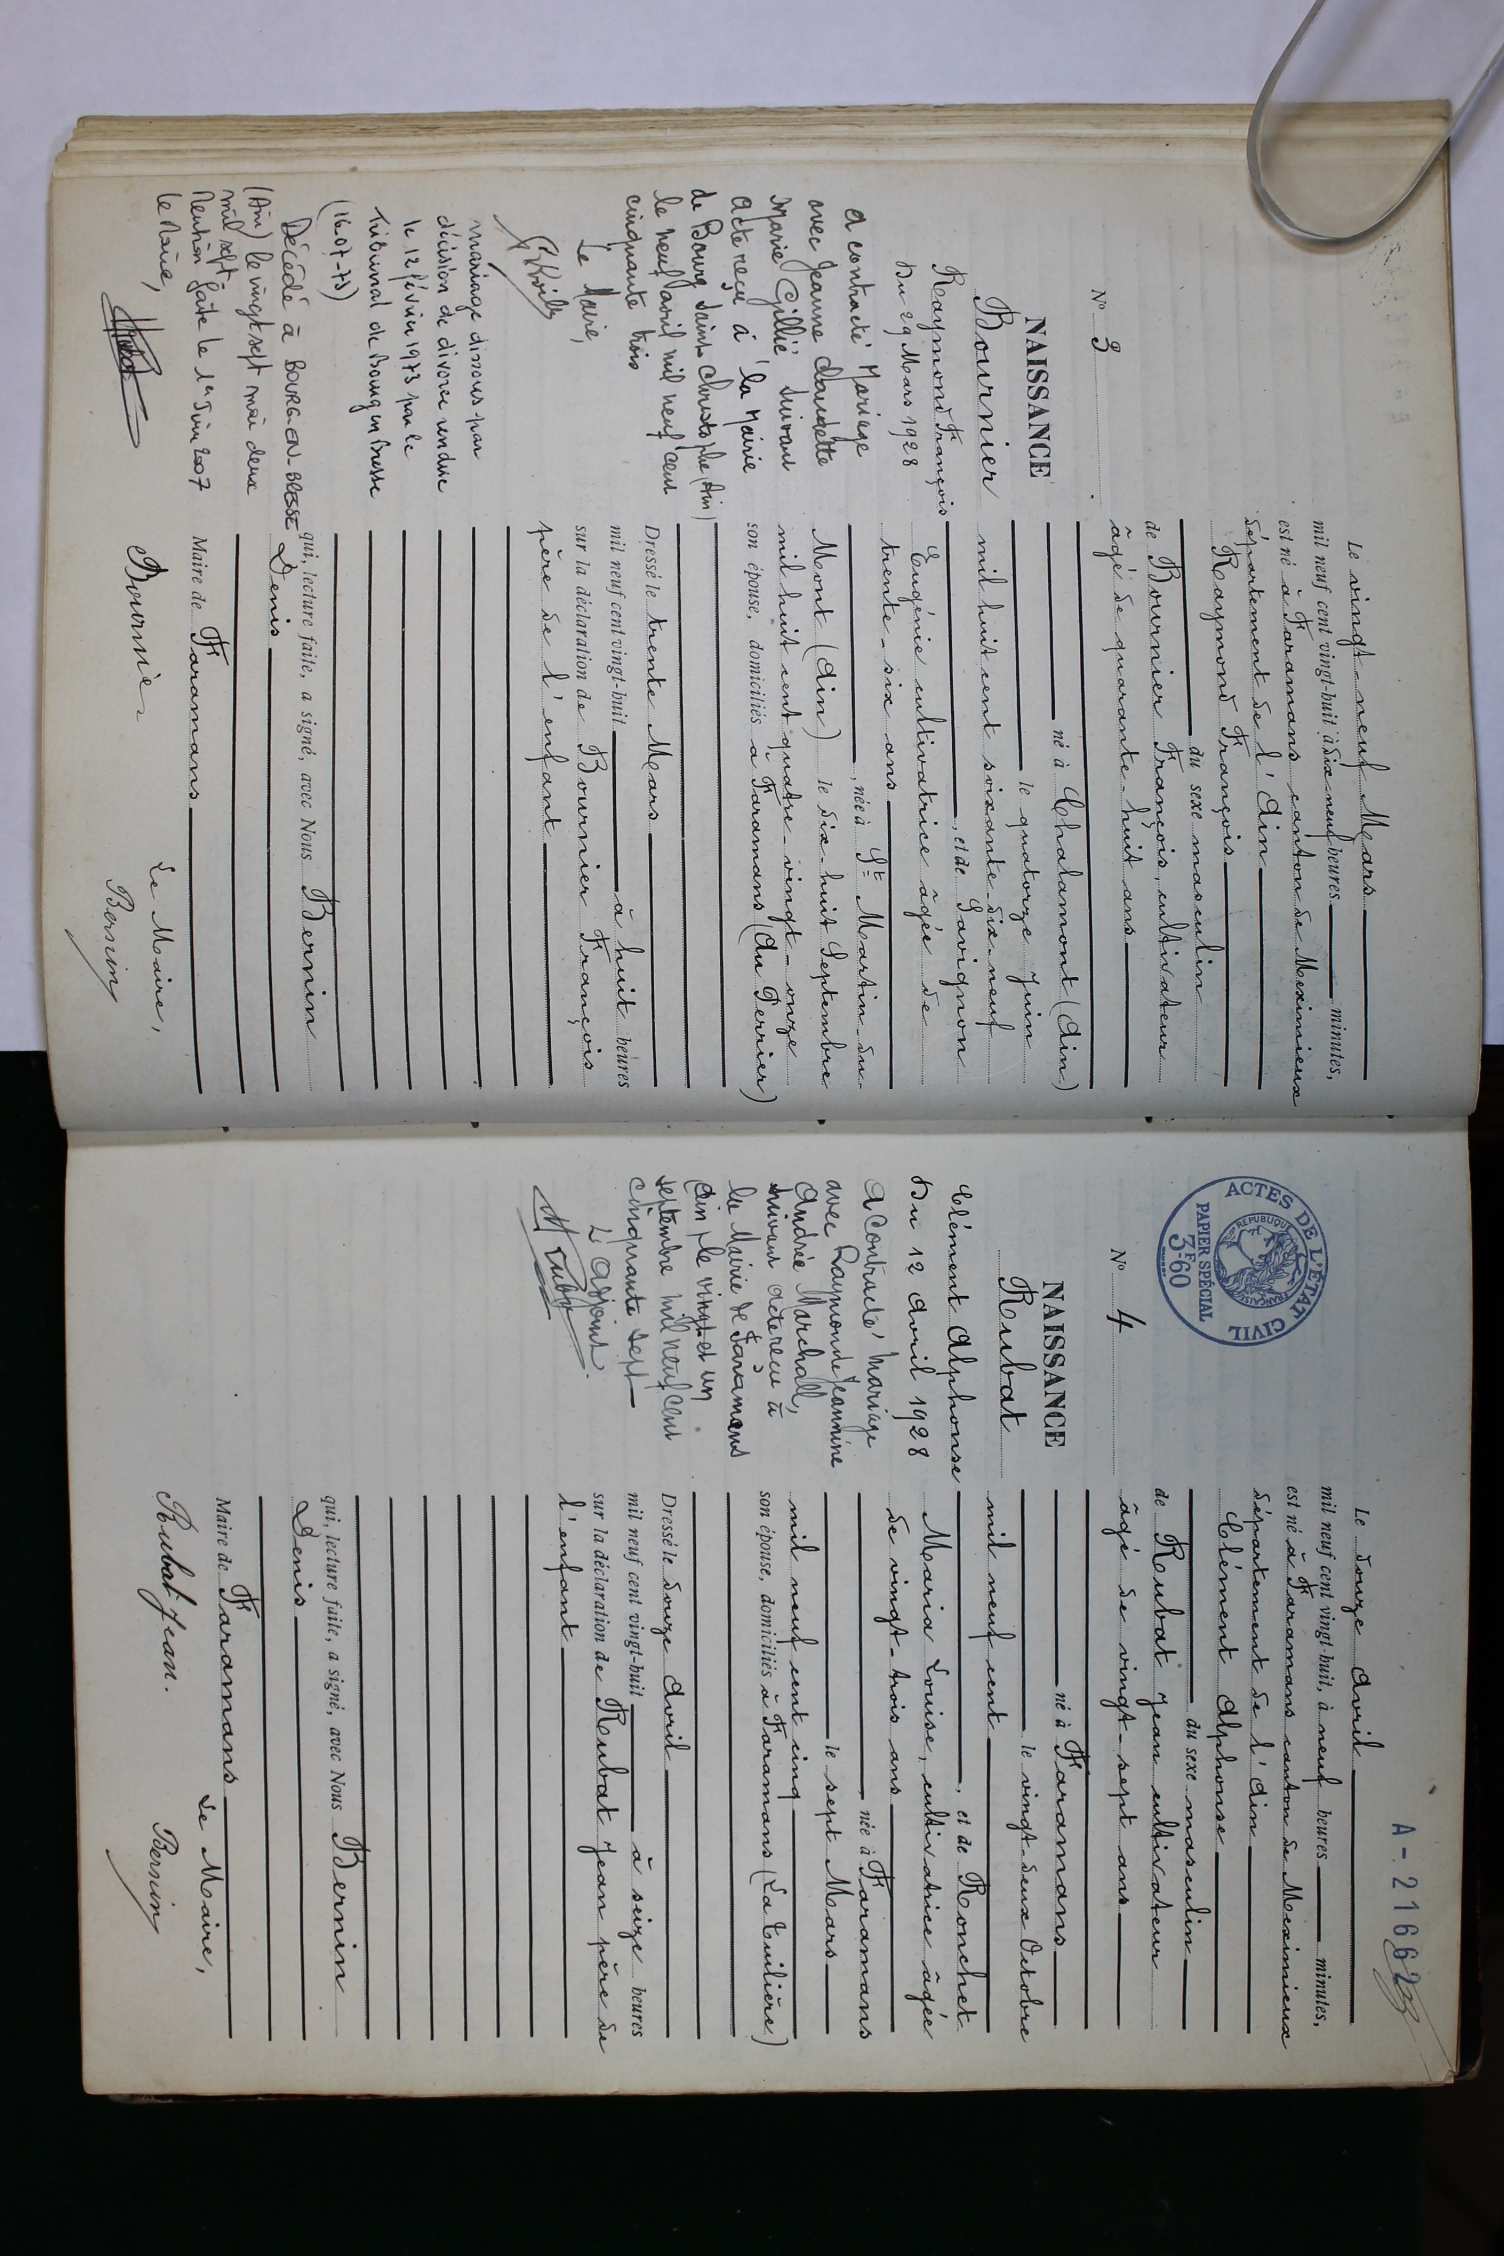 N° 3
NAISSANCE
Bournier
Raymond François
Du 29 Mars 1928
a contracté Mariage
avec Jeanne Claudette
Marie Gillié suivant
acte reçu à la Mairie
de Bourg Saint Christophe (Ain)
le neuf avril mil neuf cent
cinquante trois
Le Maire,
mariage dissous par
décision de divorce rendue
le 12 février 1973 par le
Tribunal de Bourg en Bresse
(16-07-73)
Décédé à BOURG-EN-BRESSE
(Ain) le vingt sept mai deux
mil sept
Mention faite le 1er Juin 2007
Le Maire,
Le vingt-neuf Mars
mil neuf cent vingt-huit à dix-neuf heures minutes,
est né à Faramans canton de Meximieux
département de l'Ain
Raymond François
du sexe masculin
de Bournier François, cultivateur
âgé de quarante-huit ans
né à Chalamont (Ain)
le quatorze Juin
mil huit cent soixante-dix-neuf
, et de Savignon
Eugénie cultivatrice âgée de
trente-six ans
, née à St Martin-du-
Mont (Ain) le dix-huit Septembre
mil huit cent quatre-vingt-onze
son épouse, domiciliés à Faramans (Au Perrier)
Dressé le trente Mars
mil neuf cent vingt-huit à huit heures
sur la déclaration de Bournier François
père de l'enfant
qui, lecture faite, a signé, avec Nous Bernin
Denis
Maire de Faramans
Le Maire,
Bournier
Bernin
A-21662
ACTES DE L'ÉTAT CIVIL
RÉPUBLIQUE FRANÇAISE
PAPIER SPÉCIAL
3F60
N° 4
NAISSANCE
Rubat
Clément Alphonse
Du 12 Avril 1928
a contracté mariage
avec Raymonde Jeannine
Andrée Marchall,
suivant acte reçu à
la Mairie de Faramans
(Ain) le vingt et un
septembre mil neuf cent
cinquante sept
L'adjoint.
Le douze Avril
mil neuf cent vingt-huit, à neuf heures minutes,
est né à Faramans canton de Meximieux
département de l'Ain
Clément Alphonse
du sexe masculin
de Rubat Jean cultivateur
âgé de vingt-sept ans
né à Faramans
le vingt-deux Octobre
mil neuf cent
, et de Ronchet
Maria Louise, cultivatrice âgée
de vingt-trois ans
née à Faramans
le sept Mars
mil neuf cent cinq
son épouse, domiciliés à Faramans (La Tuilière)
Dressé le douze Avril
mil neuf cent vingt-huit à seize heures
sur la déclaration de Rubat Jean père de
l'enfant
qui, lecture faite, a signé, avec Nous Bernin
Denis
Maire de Faramans
Le Maire,
Rubat Jean.
Bernin